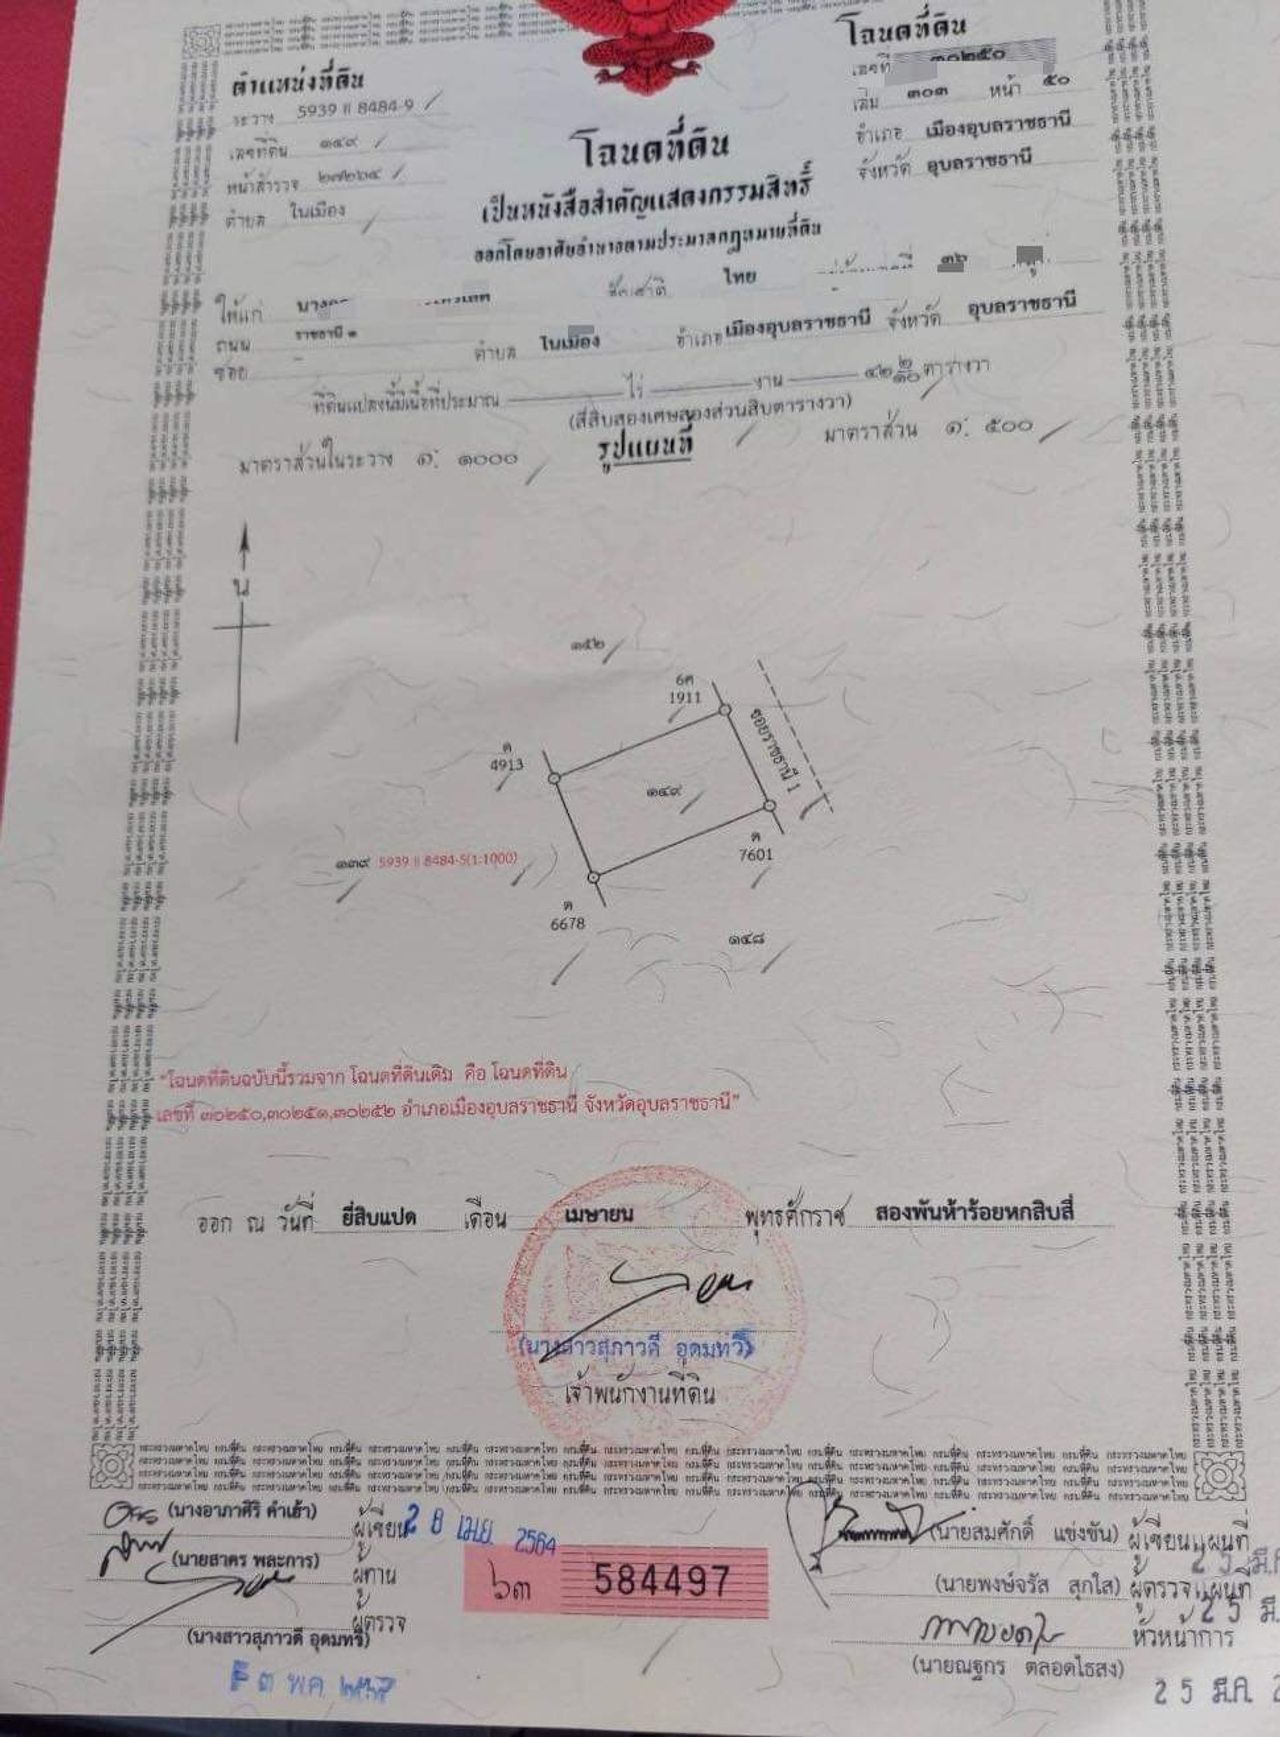 ตำแหน่งที่ดิน
ระวาง 5939 II 8484-9
เลขที่ดิน ๑๔๙
หน้าสำรวจ ๒๗๒๖๕
ตำบล ในเมือง
โฉนดที่ดิน
เลขที่ ๓๐๒๕๐
เล่ม ๓๐๓ หน้า ๕๐
อำเภอ เมืองอุบลราชธานี
จังหวัด อุบลราชธานี
โฉนดที่ดิน
เป็นหนังสือสำคัญแสดงกรรมสิทธิ์
ออกโดยอาศัยอำนาจตามประมวลกฎหมายที่ดิน
ให้แก่ สัญชาติ ไทย
ถนน ราชธานี ๑ ตำบล ในเมือง อำเภอ เมืองอุบลราชธานี จังหวัด อุบลราชธานี
ซอย –
ที่ดินแปลงนี้มีเนื้อที่ประมาณ ไร่ งาน ๔๒ ๒/๑๐ ตารางวา
(สี่สิบสองเศษสองส่วนสิบตารางวา)
มาตราส่วนในระวาง ๑: ๑๐๐๐ รูปแผนที่ มาตราส่วน ๑: ๕๐๐
น
๑๕๒
6ศ
1911
ซอยราชธานี 1
ค
4913
๑๔๙
ค
7601
๑๓๙ 5939 II 8484-5(1:1000)
ค
6678
๑๔๘
"โฉนดที่ดินฉบับนี้รวมจาก โฉนดที่ดินเดิม คือ โฉนดที่ดิน
เลขที่ ๓๐๒๕๐,๓๐๒๕๑,๓๐๒๕๒ อำเภอเมืองอุบลราชธานี จังหวัดอุบลราชธานี"
ออก ณ วันที่ ยี่สิบแปด เดือน เมษายน พุทธศักราช สองพันห้าร้อยหกสิบสี่
(นางสาวสุภาวดี อุดมทวี)
เจ้าพนักงานที่ดิน
กระทรวงมหาดไทย กรมที่ดิน
(นางอาภาศิริ คำเฮ้า) ผู้เขียน 28 เม.ย. 2564
(นายสาคร พละการ) ผู้ทาน
ผู้ตรวจ
(นางสาวสุภาวดี อุดมทวี)
๖๓ 584497
(นายสมศักดิ์ แข่งขัน) ผู้เขียนแผนที่
(นายพงษ์จรัส สุกใส) ผู้ตรวจแผนที่
หัวหน้าการ
(นายณฐกร ตลอดไธสง)
25 มี.ค.